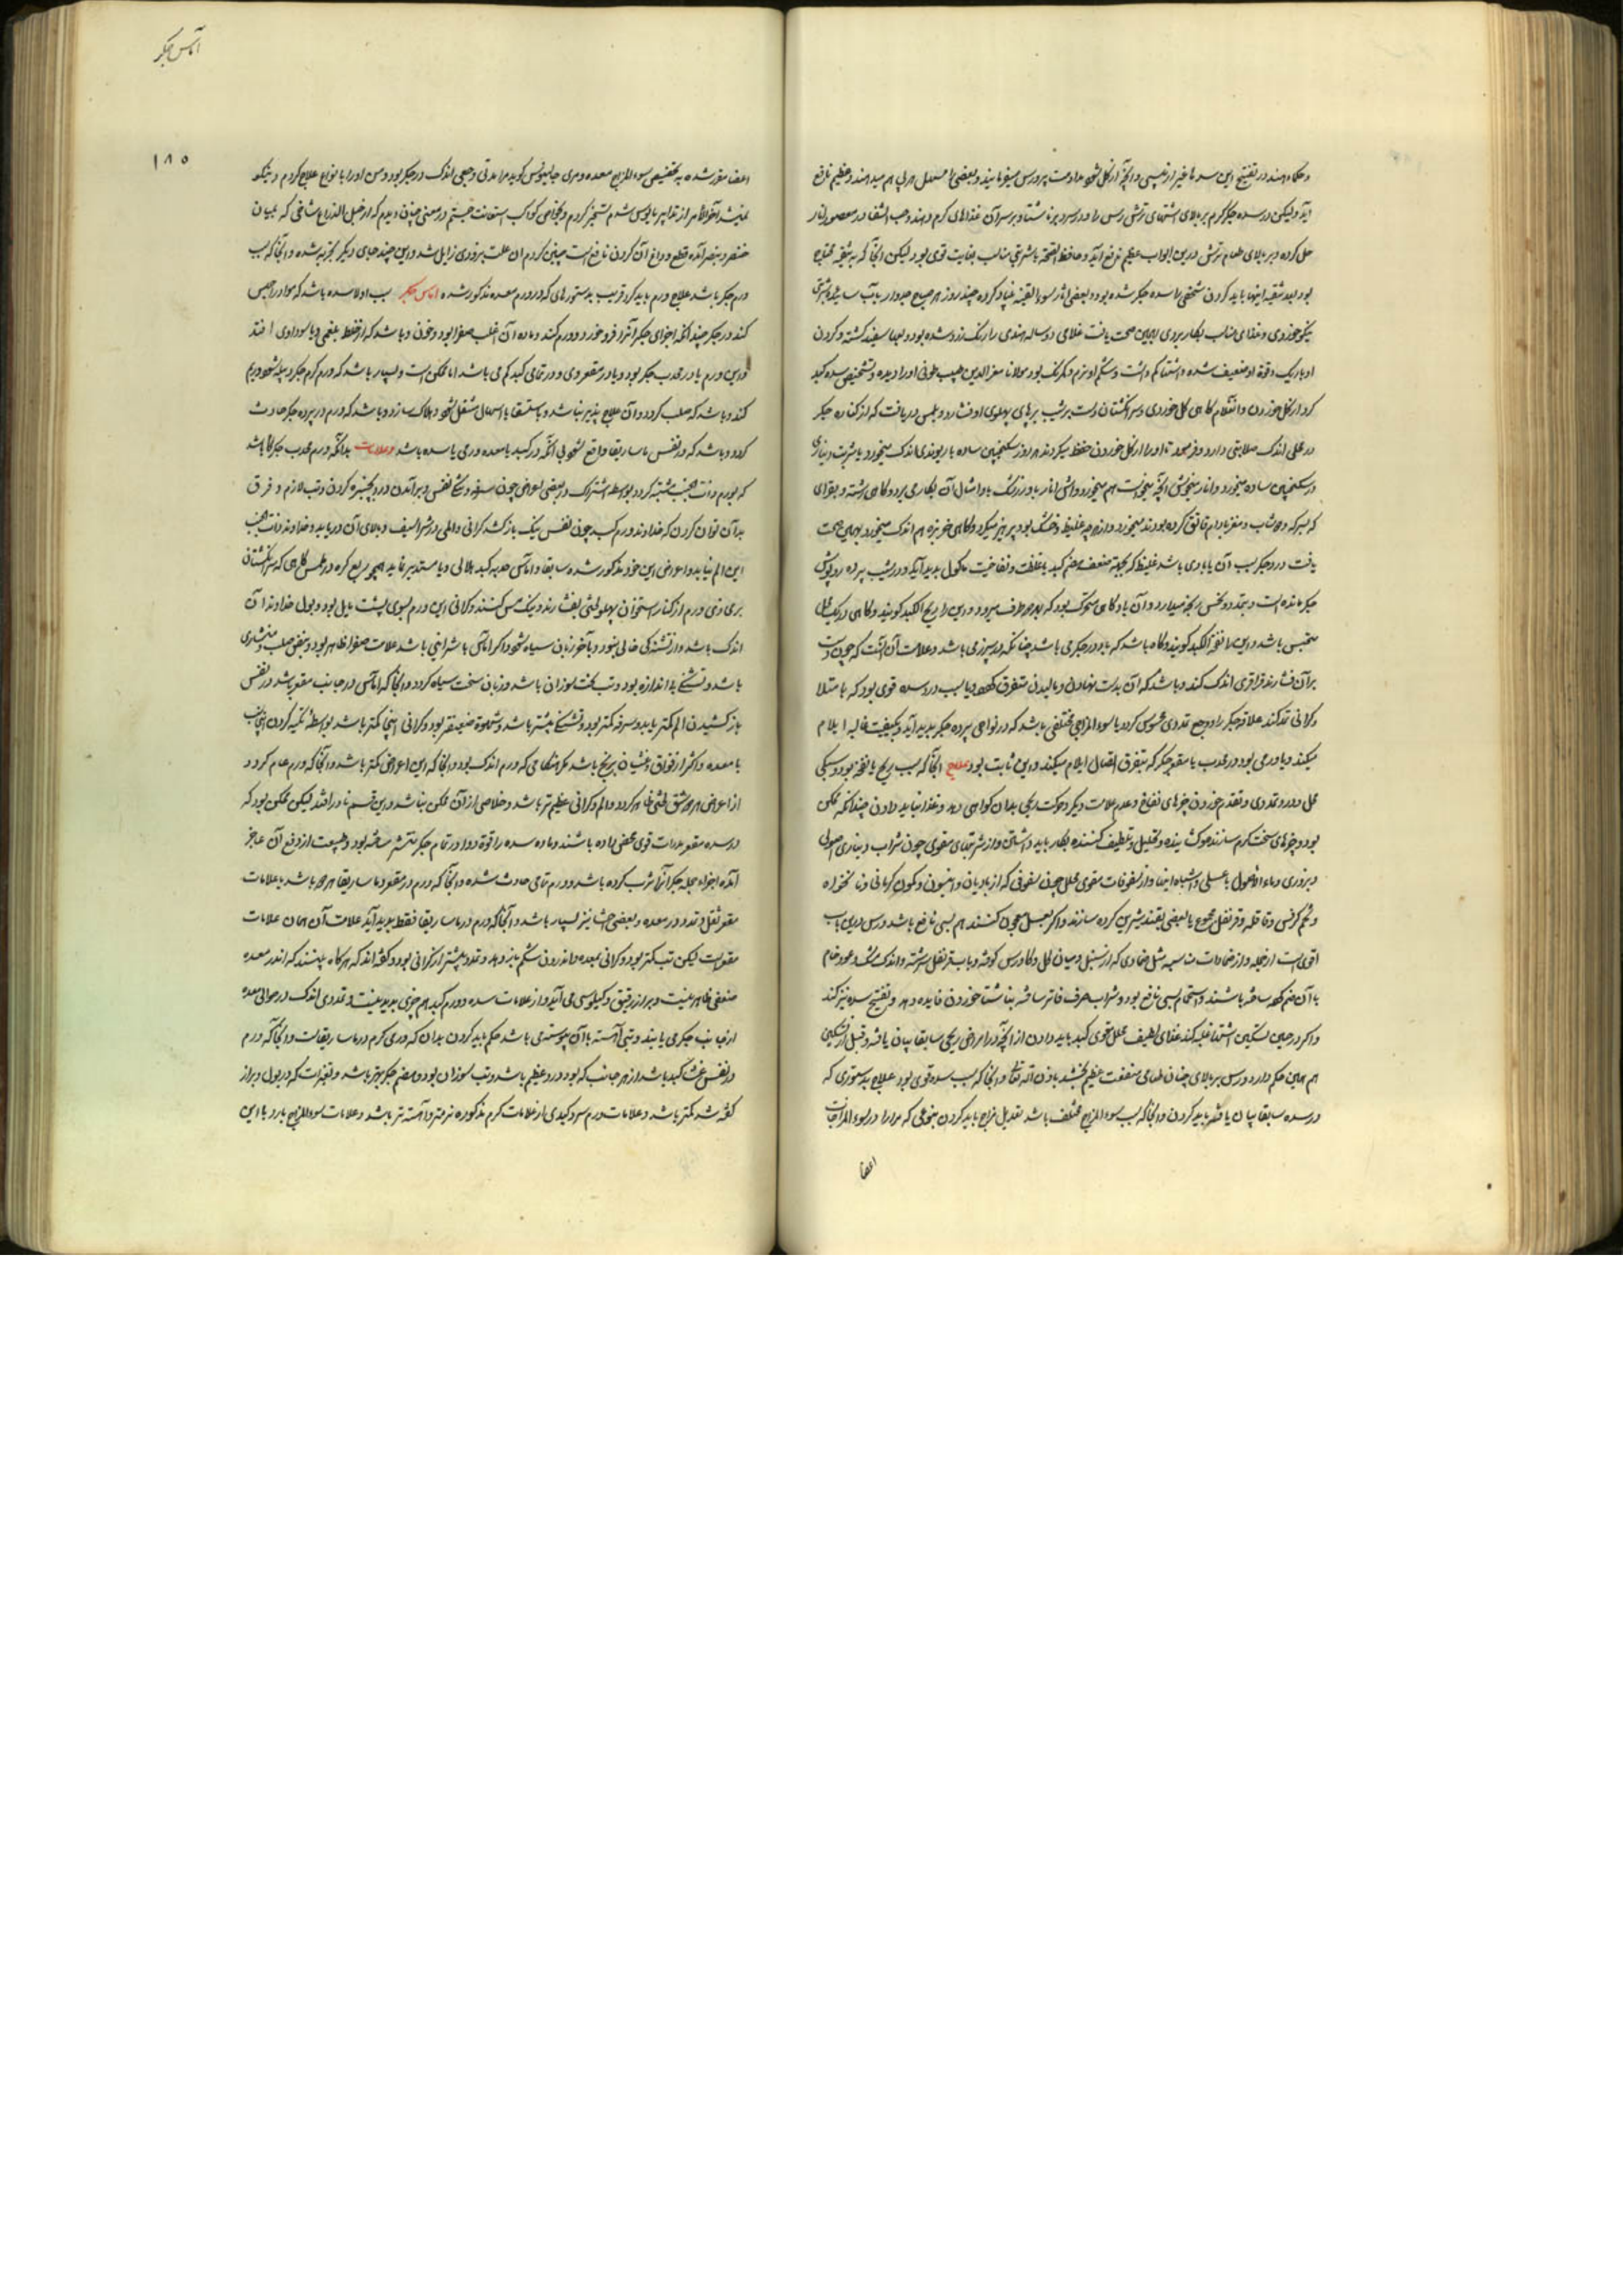 و حکماء هند در تفتیح این سدها غیر از فلیسی و آنچه از کل شود مداومت پرورس میفرمایند و بعضی را مسهل هم میدهند و عظیم نافع
آید و لیکن در سده جگر گرم بر بالای اشتهای ترش رس را و در سرد بر ناشتا و بر سر آن غذاهای گرم دهند و حب الشفا در معصور انار
حل کرده و بر بالای طعام ترش درین ابواب عظیم نافع آید و حافظ الصحه با شربتی مناسب بغایت قوی بود لیکن آنجا که به تنقیه محتاج
بود بعد تنقیه اینها باید کردن شخصی را سده جگر شده بود و بعضی آثار سوء القنیه بنیاد کرده چند روز هر صبح جدوار بآب سائیده
نیکو خوردی و غذای مناسب بکار بردی بهمین صحت یافت غلامی ده ساله هندی را رنگ زرد شده بود و لبها سفید گشته و گردن
او باریک و قوة او ضعیف شده و اشتها کم داشت و شکم او نرم و کم رنگ بود مولانا معز الدین طبیب طوفی او را دیده و تشخیص سده کبد
کرد از گل خوردن و آن غلام گاهی گل خوردی و سر انگشتان دست بر شیب برهای پهلوی او فشارد و بلمس دریافت که از کناره جگر
در محلی اندک صلابتی دارد و فرمود تا او را از گل خوردن حفظ میکردند هر روز سکنجبین ساده با ریوندی اندک میخورد یا شربت دیناری
در سکنجبین ساده میخورد و انار میخوش آنچه میخواست هم میخورد و آش انار با و زرشک با و امثال آن بکار می برد و گاهی رشته و بقرای
که بسرکه و دوشاب و مغز بادام قاتق کرده بودند میخورد و از هر چه غلیظ و خشک بود پرهیز میکرد و گاهی خربزه هم اندک میخورد بهمین صحت
یافت درد جگر سبب آن یا بادی باشد غلیظ که بجهت ضعف هضم کبد یا غلظت و نفاخیت ماکول پدید آید و در شیب پرده روپوش
جگر مانده است و بتمدد و نخس رنجه میدارد و آن باد گاهی متحرک بود که بهر طرف میرود و این را ریح الکبد گویند و گاهی در یک محل
محتبس باشد و این را نفخة الکبد گویند و گاه باشد که باد در جگر می باشد چنانکه در سپرز می باشد و علامت آن آنست که چون دست
بر آن فشارند قراقری اندک کند و باشد که آن بدست نهادن و مالیدن متفرق گردد و یا سبب درد سده قوی بود که با متلا
و گرانی تمدد کند علاقه جگر را و وجع تمددی محسوس گردد یا سوء المزاجی مختلفی باشد که در نواحی پرده جگر پدید آید و بکیفیت غالبه ایلام
میکند و یا ورمی بود در محدب یا مقعر جگر که بتفرق اتصال ایلام میکند و این ثابت بود علاج آنجا که سبب ریح یا نفخه بود و سبکی
محل درد و تمددی و تقدم خوردن چیزهای نفاخ و عدم علامات دیگر و حرکت ریحی بدان گواهی دهد و غذا نباید دادن چندانکه ممکن
بود و چیزهای سخت گرم سازنده و کشاینده و تحلیل و تلطیف کننده بکار باید داشتن و از شربتهای مقوی چون شراب دیناری اصولی
و بزوری و ماء الاصول با عسلی و اشباه اینها و از سفوفات مقوی محلل چون سفوفی که از بادیان و انیسون و کمون کرمانی و نانخواه
و تخم کرفس و قاقله و قرنفل مجموع یا بعضی بقند شیرین کرده سازند و اگر بعسل معجون کنند هم بسی نافع باشد و رس درین باب
اقوی است از جمله و از ضمادات مناسبه مثل ضمادی که از سنبل و میان گل و گاورس کوفته و بآب قرنفل سرشته و اندک مشک و عود خام
با آن ضم کرده ساخته باشند و استحمام بسی نافع بود و شراب صرف فاتر ساخته بناشتا خوردن فایده دهد و تفتیح سده نیز کند
و اگر در حین تسکین اشتها غلبه کند غذای لطیف محلل مقوی کبد باید دادن از آنچه در امراض ریحی سابقا بیان یافته و قبل از تسکین
هم همین حکم دارد و رس بر بالای چنان طعامی منفعت عظیم بخشد باذن الله تعالی و آنجا که سبب سده قوی بود علاج بدستوری که
در سده سابقا بیان یافته باید کردن و آنجا که سبب سوء المزاج مختلف باشد تعدیل مزاج باید کردن بنوعی که مرارا در سوء المزاجات
اعضا
آماس جگر
۱۸۵
اعضا مقرر شده به تخصیص سوء المزاج معده و مری جالینوس گوید مرا مدتی وجعی اندک در جگر بود و من او را با نواع علاج کردم و نیکو
نمیشد آخر الامر از تدابیر مایوس شدم تسخیر کردم و بخواص کواکب استعانت جستم در معنی چنان دیدم که از حبل الذراع شاخی که بمیان
خنصر و بنصر آمده قطع و داغ آن کردن نافع است چنین کردم آن علت بزودی زایل شد و این چند جای دیگر بتجربه شده و آنجا که سبب
ورم جگر باشد علاج ورم باید کرد قریب بدستورهای که در ورم معده مذکور شده آماس جگر سبب او لا سده باشد که مواد را حبس
کند در جگر چندانکه اجزای جگر آنرا فرو خورد و ورم کند و ماده آن اغلب صفرا بود و خون و باشد که از خلط بلغمی و یا سوداوی افتد
و این ورم یا در محدب جگر بود و یا در مقعر وی و در تمامی کبد کم می باشد اما ممکن است و بسیار باشد که ورم گرم جگر دبیله شود و ریم
کند و باشد که صلب گردد و آن علاج پذیر نباشد و باستسقا یا اسهال منتقل شود و هلاک سازد و باشد که ورم در پرده جگر حادث
گردد و باشد که در نفس ماساریقا واقع شود بی آنکه در کبد یا معده ورمی یا سده باشد علامات بدانکه ورم محدب جگر گاه باشد
که بورم ذات الجنب مشتبه گردد بواسطه اشتراک در بعضی اعراض چون سرفه و تنگی نفس و برآمدن درد بچنبره گردن و تب لازم و فرق
بدان توان کردن که خداوند ورم کبد چون نفس نیک باز کشد گرانی و المی در شراسیف و بالای آن دریابد و خداوند ذات الجنب
این الم نیابد و اعراض این خود مذکور شده سابقا و آماس حدبه کبد هلالی و یا مستدیر نماید همچو ربع کره در لمس گاهی که سر انگشتان
بر محاذی ورم از کنار استخوان پهلو لختی بفشارند و نیک مس کنند و گرانی این ورم بسوی پشت مایل بود و بول خداوند آن
اندک باشد و از تشنگی خالی نبود و بآخر زبان سیاه شود و اگر آماس ماشرائی باشد علامت صفرا ظاهر بود و نبض صلب و منشاری
باشد و تشنگی بی اندازه بود و تب سخت سوزان باشد و زبان سخت سیاه گردد و آنجا که آماس در جانب مقعر باشد در نفس
باز کشیدن الم کمتر یابد و سرفه کمتر بود و تشنگی بیشتر باشد و شهوة ضعیفتر بود و گرانی اینجا کمتر باشد بواسطه تکیه کردن اینجانب
با معده و اکثر از فواق و غثیان برنج باشد مگر هنگامی که ورم اندک بود و آنجا که این اعراض کمتر باشد و آنجا که ورم عام گردد
از اعراض هر دو شق لختی ظاهر گردد و الم و گرانی عظیم تر باشد و خلاصی از آن ممکن نباشد و این قسم نادر افتد لیکن ممکن بود که
در سده مقعر مدرات قوی محض داده باشند و ماده سده را قوة دوا در تمام جگر منتشر ساخته بود و طبیعت از دفع آن عاجز
آمده اجزاء جمله جگر آنرا شرب کرده باشد و ورم تمامی حادث شده و آنجا که ورم در مقعر و ماساریقا هر دو باشد با علامات
مقعر ثقل و تمدد در معده و بعضی احشا نیز بسیار باشد و آنجا که ورم در ماساریقا فقط پدید آید علامات آن همان علامات
مقعر است لیکن تب کمتر بود و گرانی بمعده و اندرون شکم باز دهد و تمدد بیشتر از گرانی بود و گفته اند که هر گاه بینند که اندر معده
ضعفی ظاهر نیست و براز رقیق و کیلوسی می آید و از علامات سده و ورم کبد هم چیزی پدید نیست و تمددی اندک در حوالی معده
از جانب جگر می یابند و تبی آهسته با آن پیوسته می باشد حکم باید کردن بدان که ورمی گرم در ماساریقاست و آنجا که ورم
در نفس غشاء کبد باشد از هر جانب که بود درد عظیم باشد و تب سوزان بود و هضم جگر بهتر باشد و تغیرات که در بول و براز
گفته شد کمتر باشد و علامات ورم سرد کبدی از علامات گرم مذکوره نرمتر و آهسته تر باشد و علامات سوء المزاج بارد با این